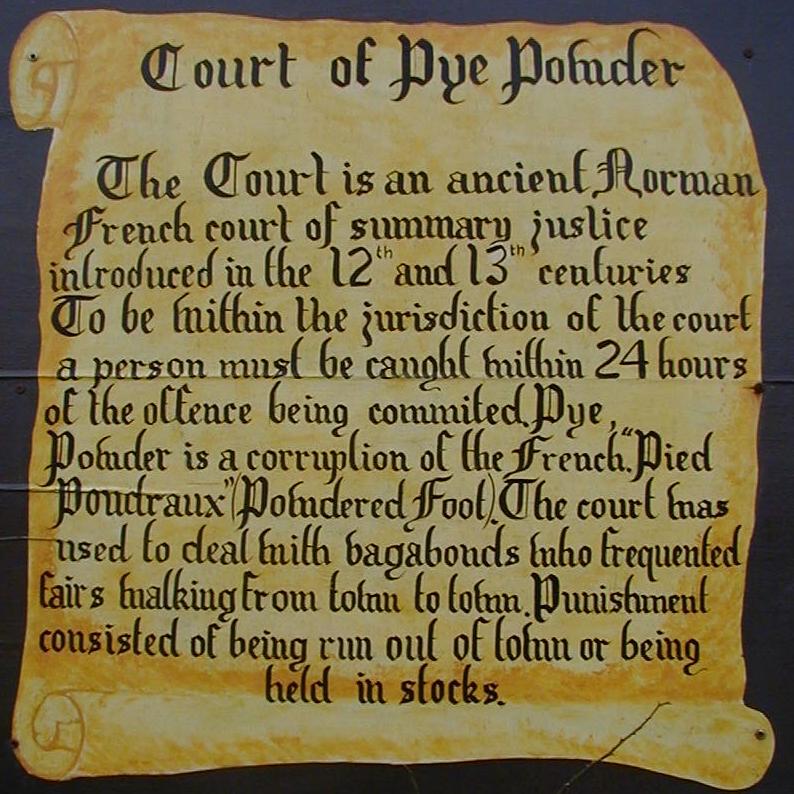 Court of Pye Powder
The Court is an ancient Norman
French court of summary justice
introduced in the 12th and 13th centuries
To be within the jurisdiction of the court
a person must be caught within 24 hours
of the offence being commited. Pye,
Powder is a corruption of the French. "Pied
Poudraux" (Powdered Foot). The court was
used to deal with vagabonds who frequented
fairs walking from town to town. Punishment
consisted of being run out of town or being
held in stocks.